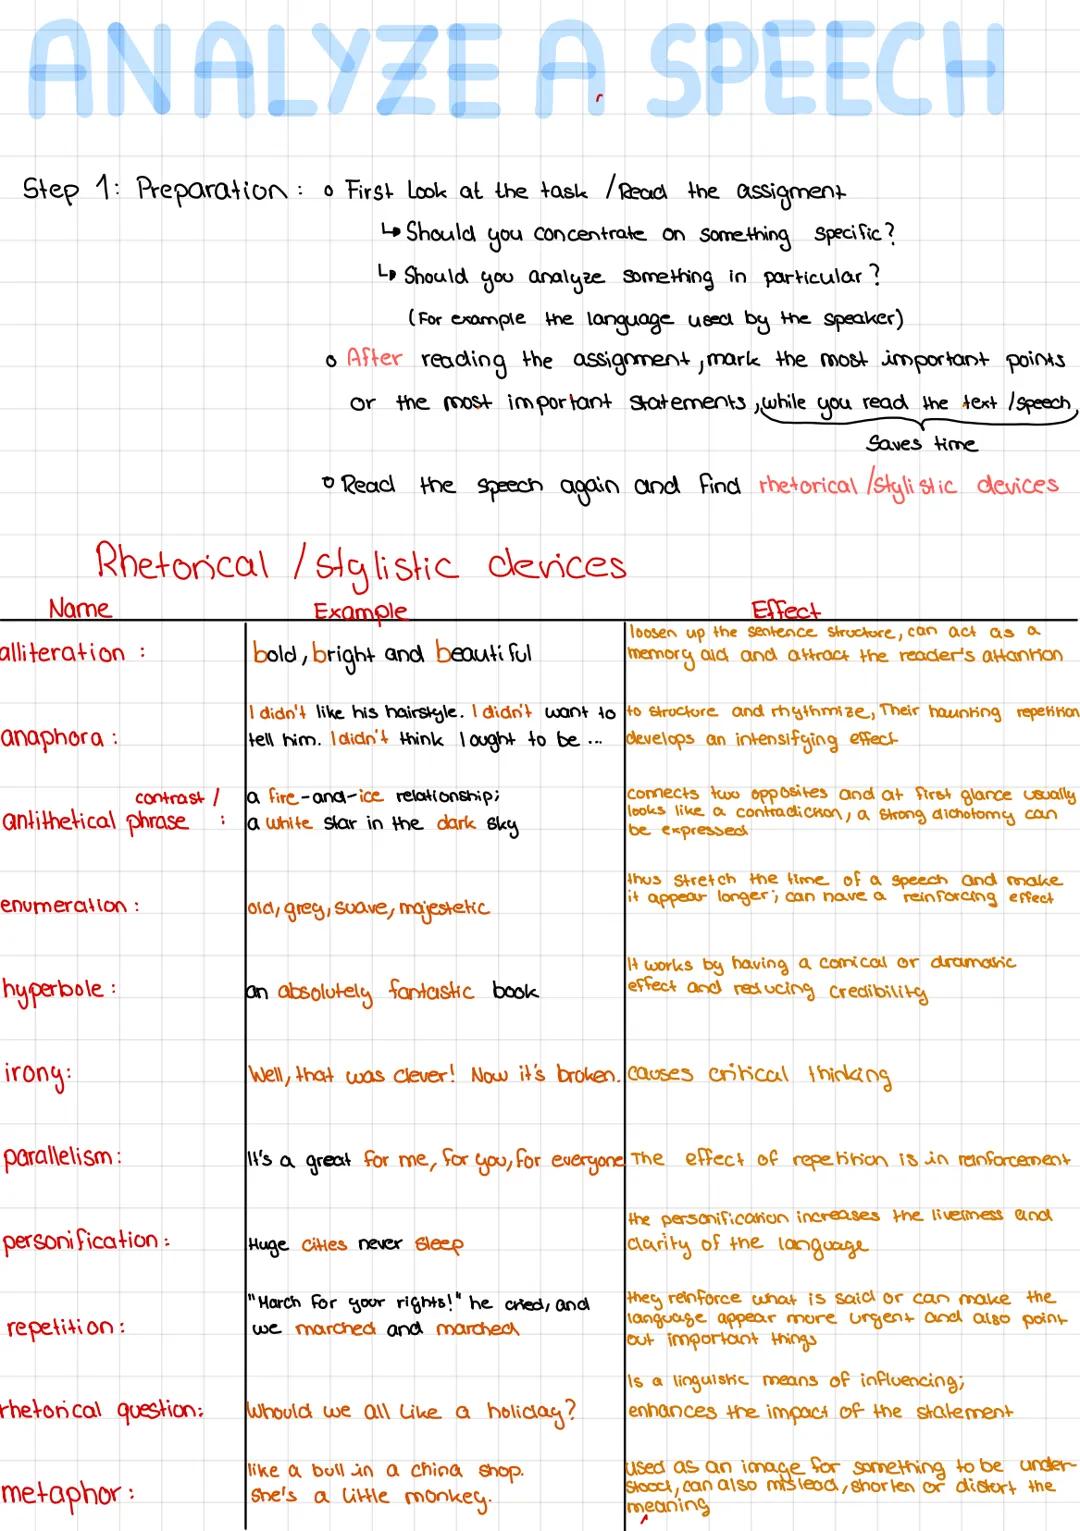 ANALYZE A SPEECH
Step 1: Preparation: o First look at the task / Read the assigment
↳ Should you concentrate on something specific?
↳ Should you analyze something in particular?
(For example the language used by the speaker)
o After reading the assignment, mark the most important points
or the most important statements, while you read the text / speech,
Saves time
o Read the speech again and find rhetorical / stylistic devices
Rhetorical / stylistic devices
Name Example Effect
alliteration : bold, bright and beautiful
loosen up the sentence structure, can act as a
memory aid and attract the reader's attantion
anaphora :
I didn't like his hairstyle. I didn't want to
tell him. I didn't think I ought to be ...
to structure and rhythmize, Their haunting repetition
develops an intensifying effect
contrast /
antithetical phrase :
a fire-and-ice relationship;
a white star in the dark sky
connects two opposites and at first glance usually
looks like a contradiction, a strong dichotomy can
be expressed
enumeration : old, grey, suave, majestetic
thus stretch the time of a speech and make
it appear longer; can have a reinforcing effect
hyperbole : an absolutely fantastic book
It works by having a comical or dramatic
effect and reducing credibility
irony: Well, that was clever! Now it's broken. causes critical thinking
parallelism: It's a great for me, for you, for everyone The effect of repetition is in reinforcement
personification : Huge cities never sleep
the personification increases the liveliness and
clarity of the language
repetition :
"March for your rights!" he cried, and
we marched and marched
they reinforce what is said or can make the
language appear more urgent and also point
out important things
rhetorical question: Whould we all like a holiday?
Is a linguistic means of influencing;
enhances the impact of the statement
metaphor :
like a bull in a china shop.
She's a little monkey.
used as an image for something to be under-
stood, can also mislead, shorten or distort the
meaning